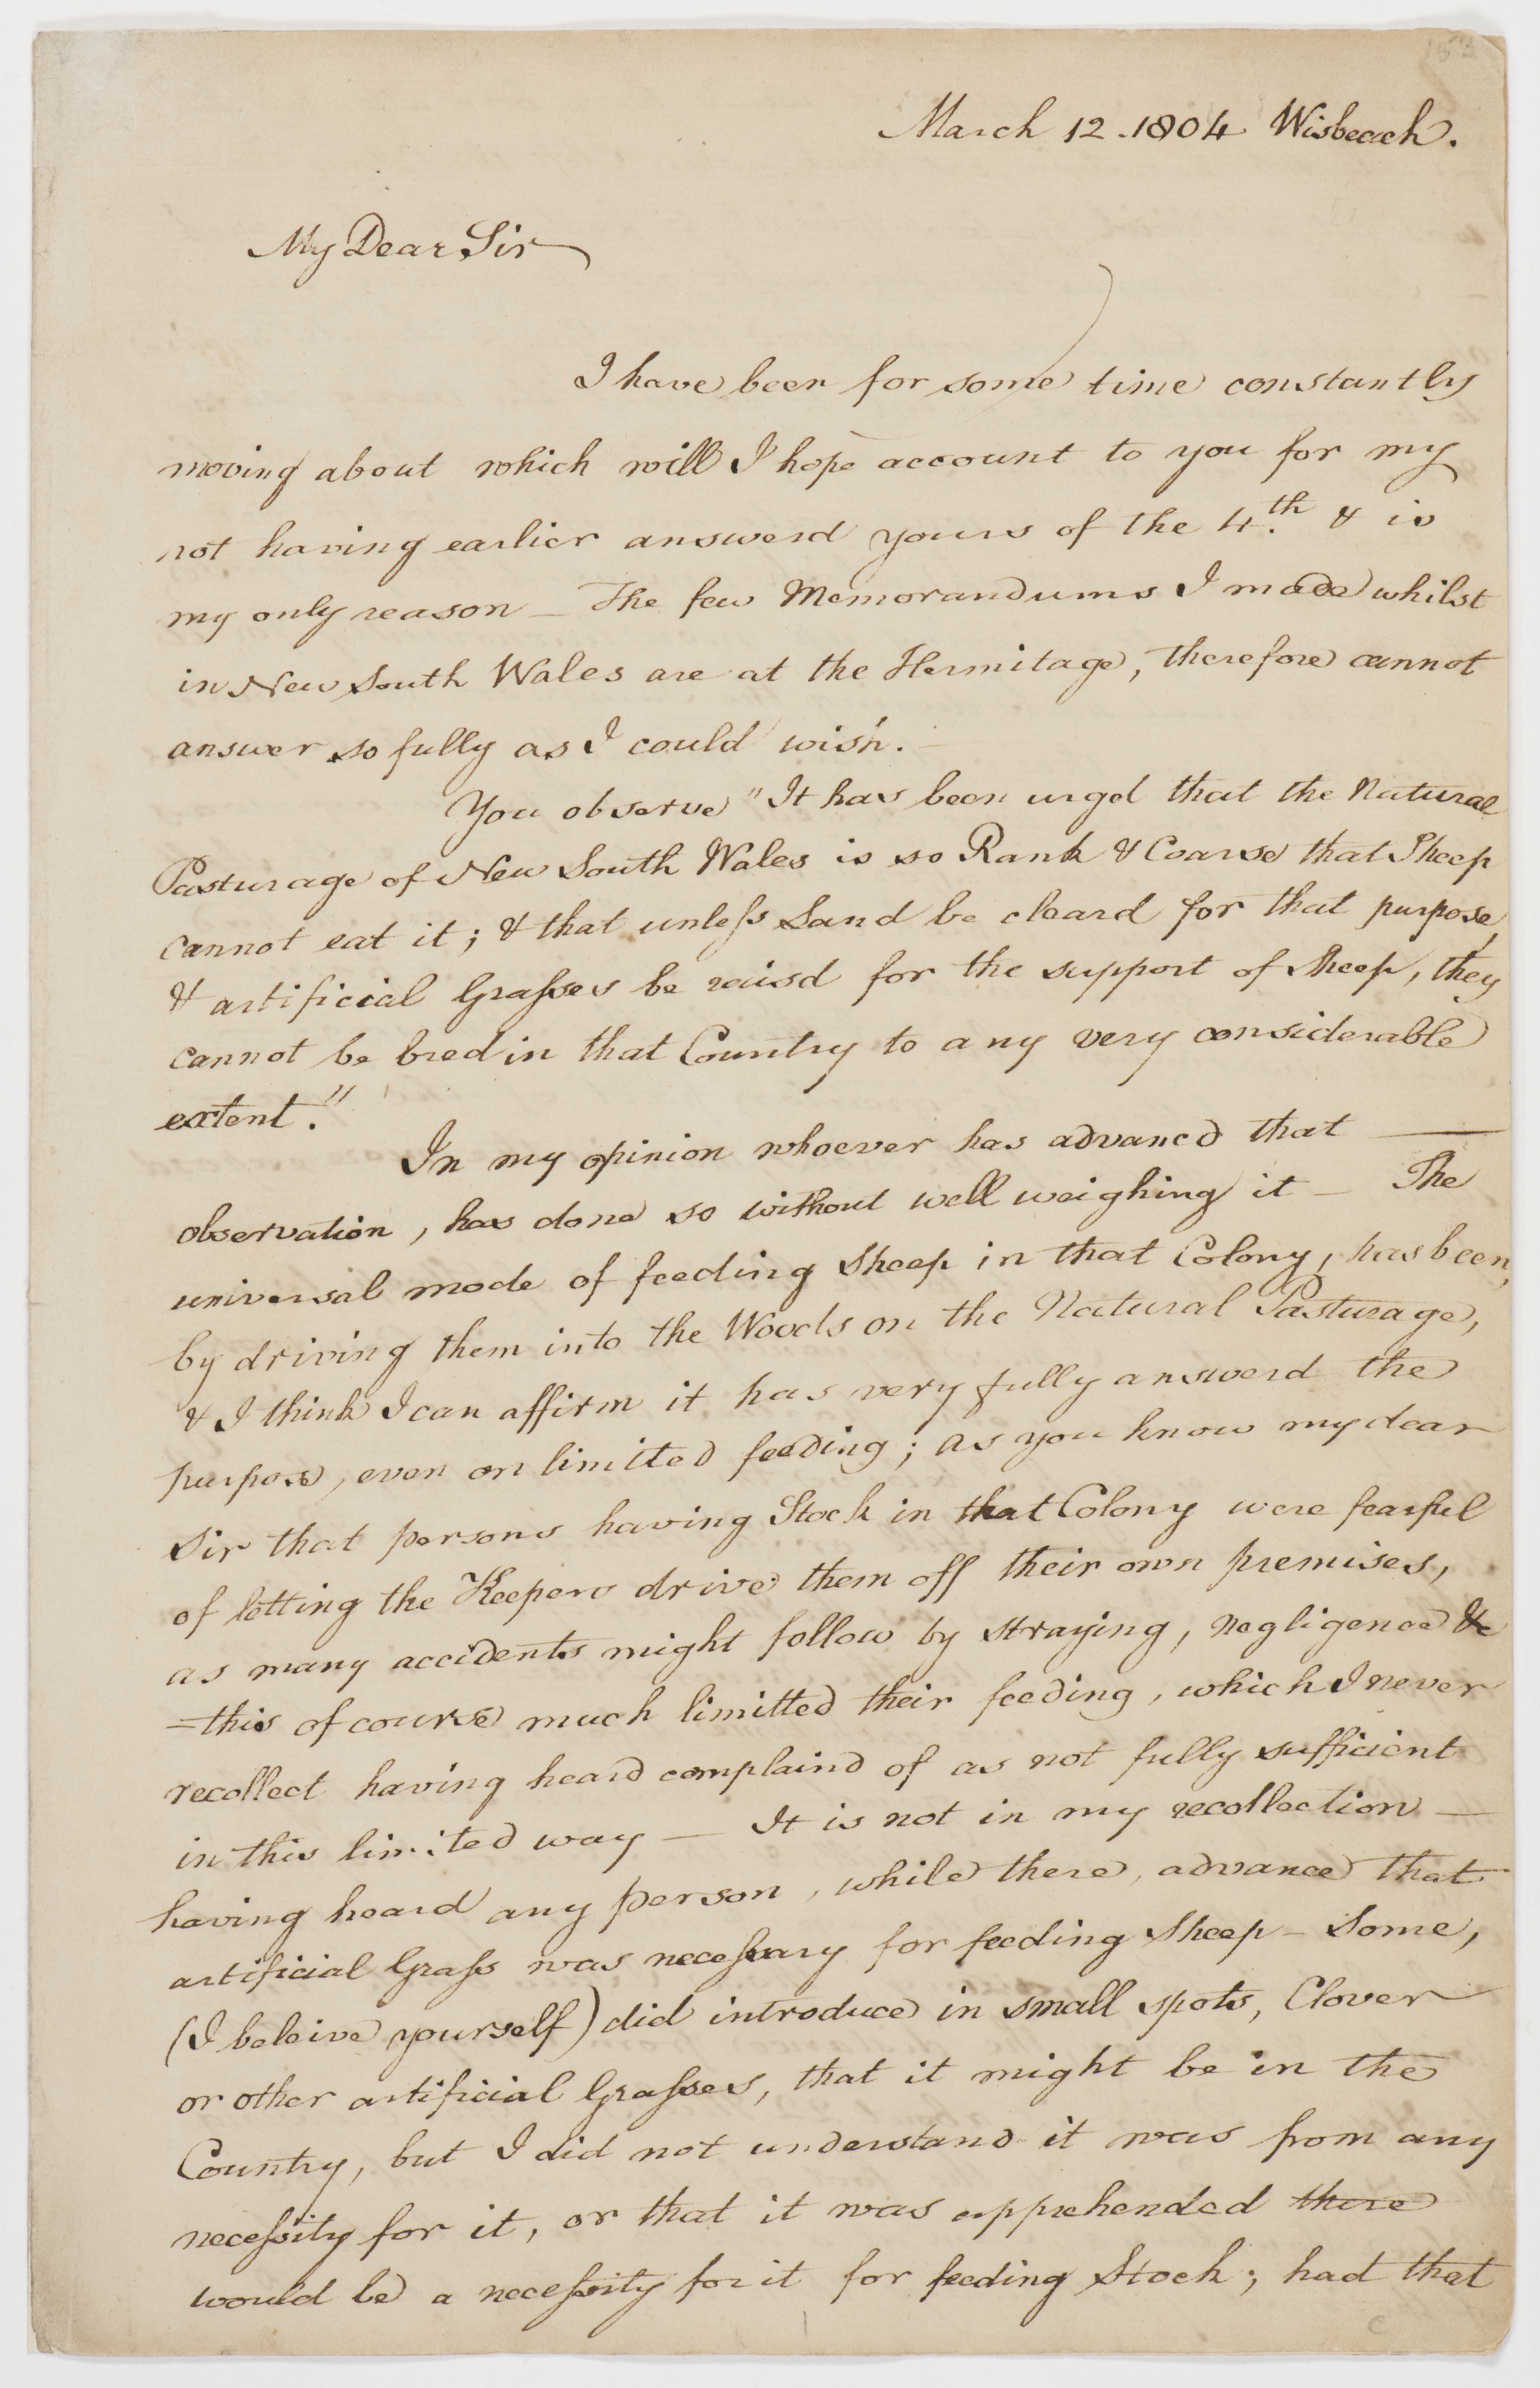 March 12. 1804 Wisbeach.
My Dear Sir
I have been for some time constantly
moving about which will I hope account to you for my
not having earlier answerd yours of the 4.th & is
my only reason — The few Memorandums I made whilst
in New South Wales are at the Hermitage, therefore cannot
answer so fully as I could wish. —
You observe "It has been urged that the Natural
Pasturage of New South Wales is so Rank & Coarse that Sheep
cannot eat it; & that unleſs Land be cleard for that purpose,
& artificial Graſses be raisd for the support of Sheep, they
cannot be bred in that Country to any very considerable
extent."
In my opinion whoever has advancd that —
observation, has done so without well weighing it — The
universal mode of feeding Sheep in that Colony, has been,
by driving them into the Woods on the Natural Pasturage,
& I think I can affirm it has very fully answerd the
purpose, even on limited feeding; as you know my dear
Sir that persons having Stock in that Colony were fearful
of letting the Keepers drive them off their own premises,
as many accidents might follow by straying, negligence &c
=this of course much limitted their feeding, which I never
recollect having heard complaind of as not fully sufficient
in this limited way — It is not in my recollection —
having heard any person, while there, advance that
artificial Graſs was neceſsary for feeding Sheep — Some,
(I beleive yourself) did introduce in small spots, Clover
or other artificial Graſses, that it might be in the
Country, but I did not understand it was from any
neceſsity for it, or that it was apprehended there
would be a neceſsity for it for feeding Stock; had that